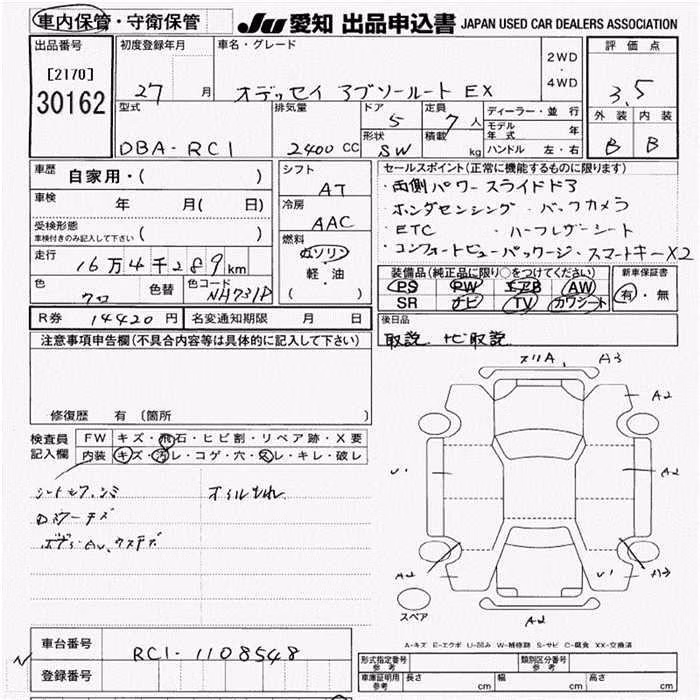 車内保管・守衛保管
JU 愛知 出品申込書 JAPAN USED CAR DEALERS ASSOCIATION
出品番号
[2170]
30162
初度登録年月
27 月
車名・グレード
オデッセイ アブソルート EX
2WD
・
4WD
評価点
3.5
外装 内装
B B
型式
DBA-RC1
排気量
2400 CC
ドア
5
定員
7 人
形状
SW
積載
kg
ディーラー・並行
モデル年式 年
ハンドル 左・右
車歴 自家用・( )
車検 年 月( 日)
受検形態
車検付きのみ記入して下さい ( )
走行
16万4千289 km
色
クロ
色替
色コード
NH731P
シフト
AT
冷房
AAC
燃料
ガソリン
軽・油
( ・ )
セールスポイント(正常に機能するものに限ります)
・両側パワースライドドア
・ホンダセンシング・バックカメラ
・ETC ・ハーフレザーシート
・コンフォートビューパッケージ・スマートキーX2
装備品(純正品に限り○をつけてください)
PS PW エアB AW
SR ナビ TV カワシート
新車保証書
有・無
R券 14420円
名変通知期限 月 日
後日品
取説 ナビ取説
注意事項申告欄(不具合内容等は具体的に記入して下さい)
修復歴 有〔箇所 〕
検査員
記入欄
FW キズ・飛石・ヒビ割・リペア跡・X要
内装 キズ・汚レ・コゲ・穴・スレ・キレ・破レ
オイルもれ
スリA、 A3
A2
A2
A2
A2
スペア
A-キズ E-エクボ U-凹み W-補修跡 S-サビ C-腐食 XX-交換済
車台番号 RC1-1108548
登録番号
型式指定番号
参考
類別区分番号
参考
車庫証明用
参考
長さ cm
幅 cm
高さ cm